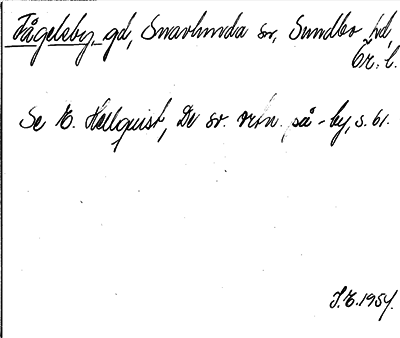 Fågelsby, gd, Snavlunda sn, Sundbo hd,
Ör. l.
Se E. Hellquist, De sv. ortn. på -by, s. 61.
J.E. 1954.